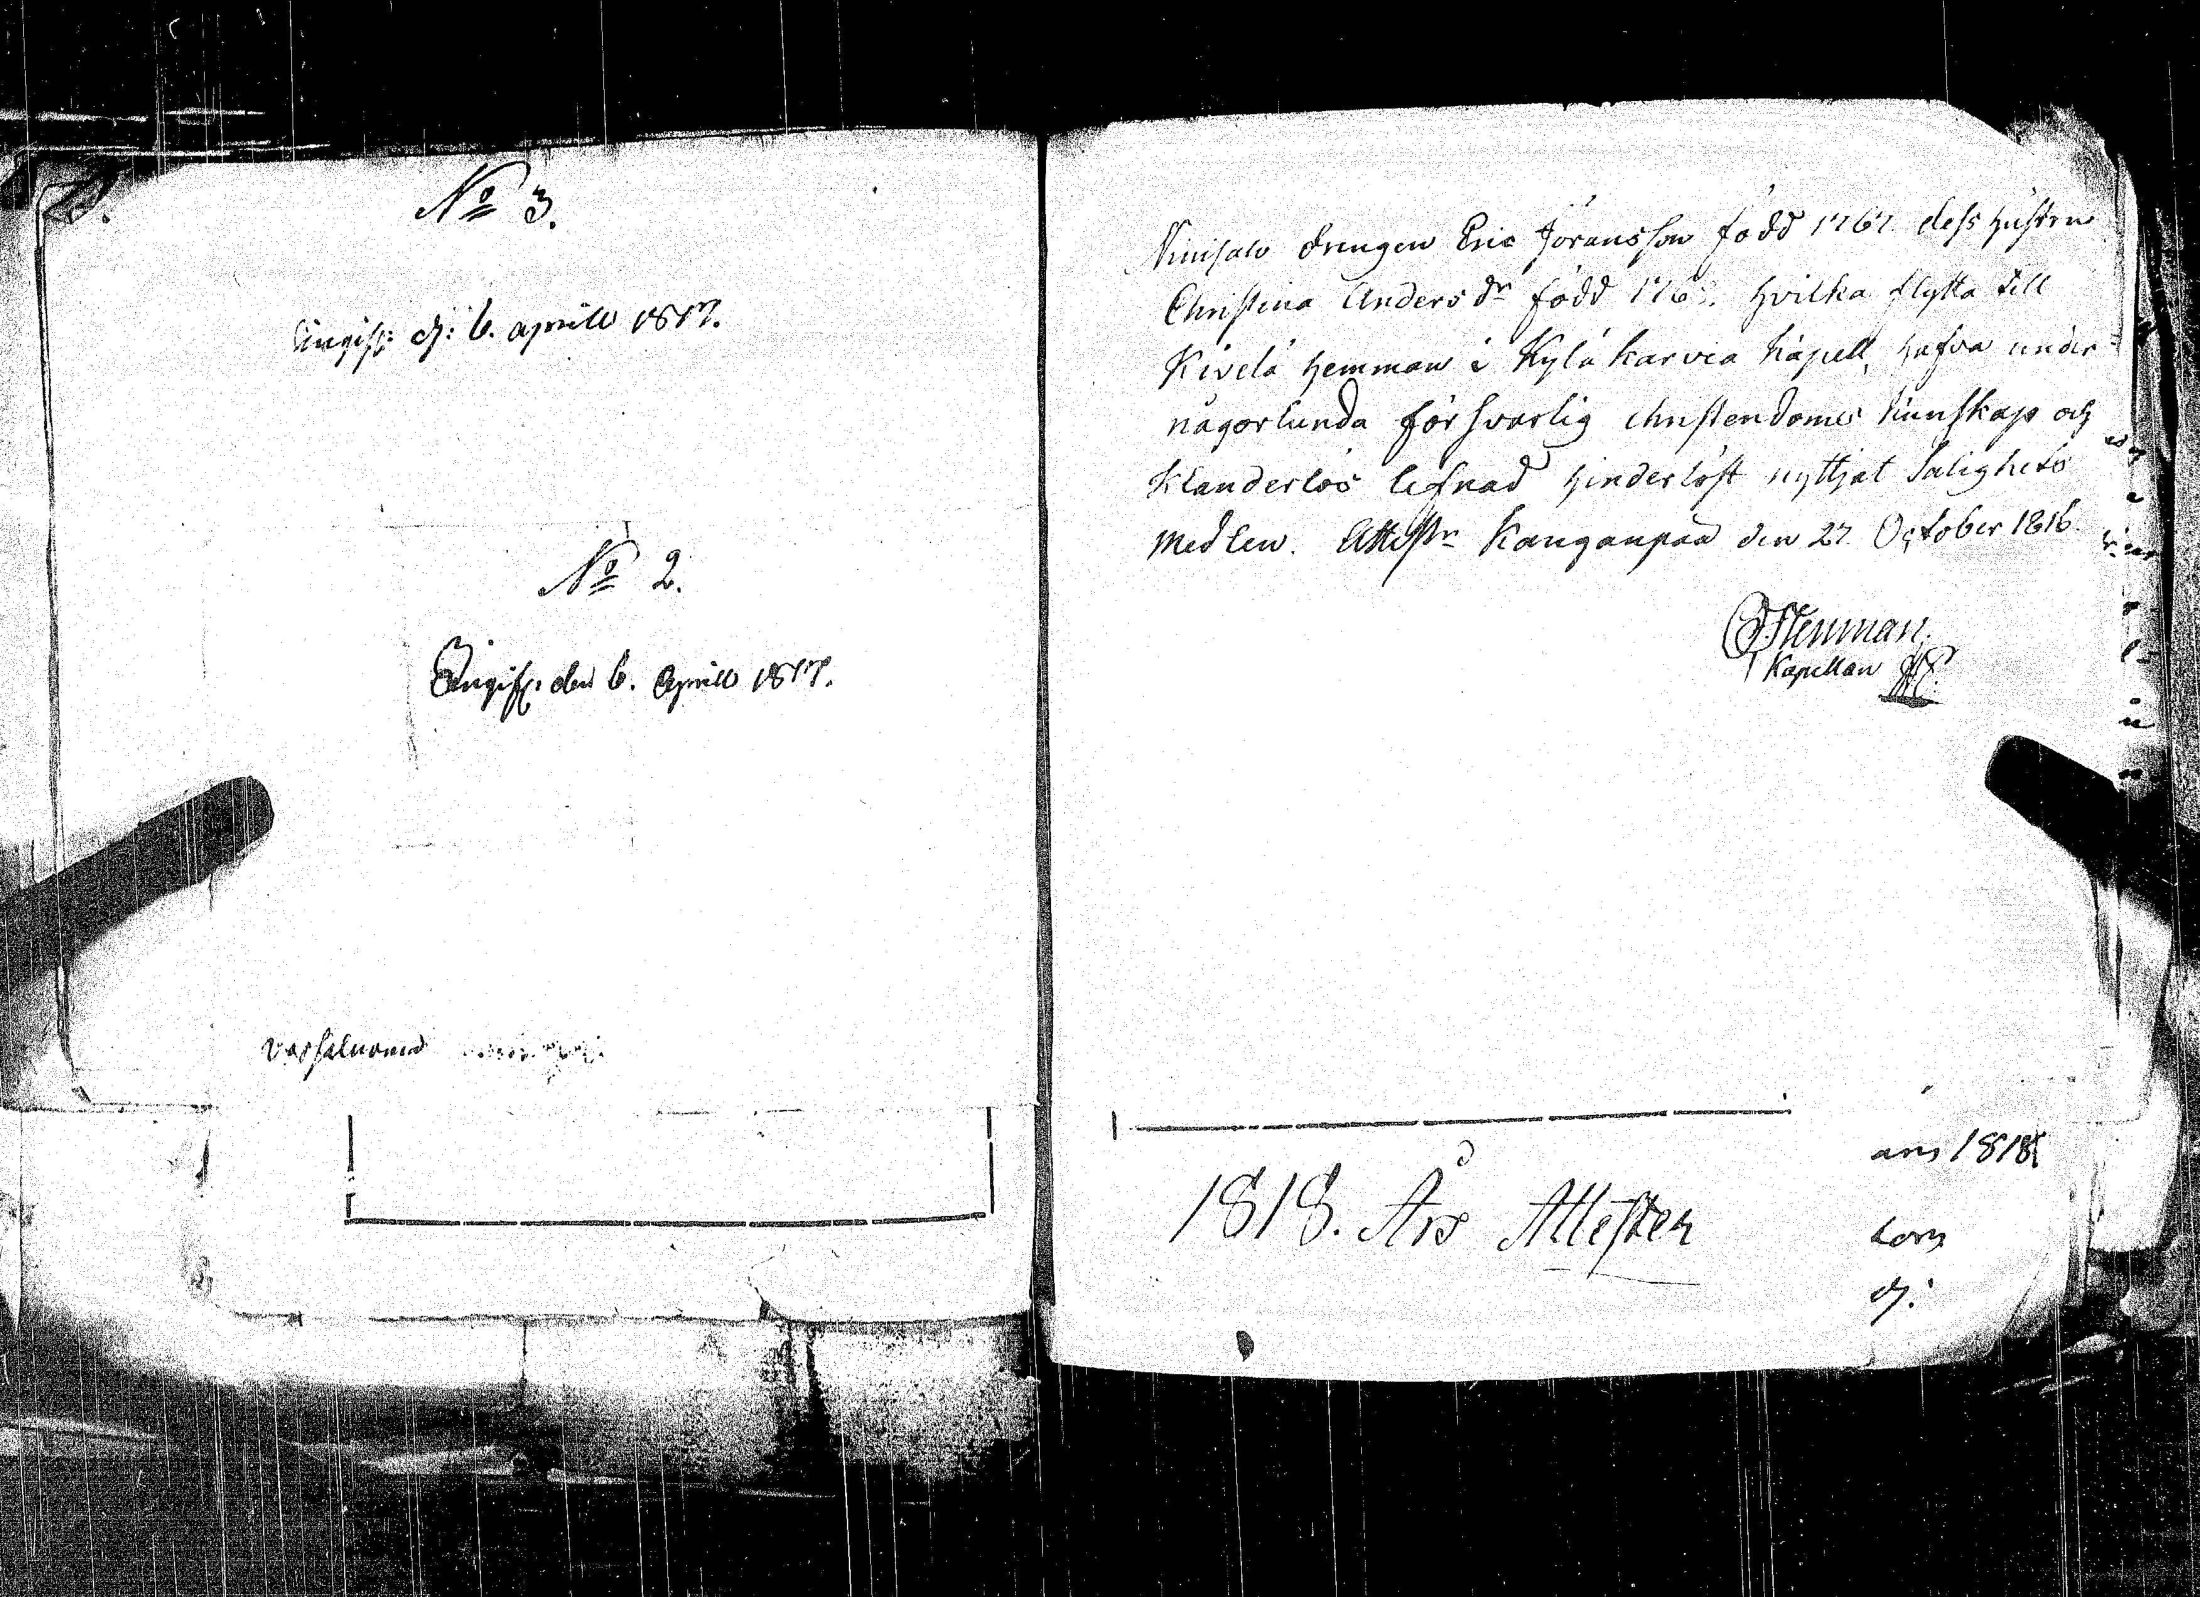 No 3.
Ingif: d: 6. aprill 1817.
No 2.
Ingif: den 6. Aprill 1817.
Niinisalo drengen Eric Jöransson född 1767. dess hustru
Christina Anders dr född 176 . hvilka flytta till
Kivelä hemman i Kylä karvia kapell, hafva under
någorlunda försvarlig christendoms kunskap och
klanderlös lefnad hinderlöst nyttjat Salighets
medlen. Attestr Kanganpää den 27. October 1816.
Stenman.
Kapellan
ars 1818
1818. Års Attester
som
d: